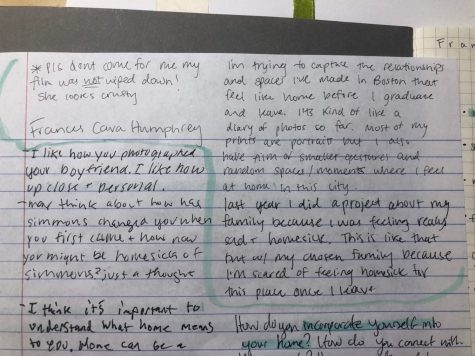 Fran
* Pls dont come for me my
film was not wiped down!
She looks crusty
Frances Cava Humphrey
I like how you photographed
your boyfriend. I like how
up close + personal.
- may think about how has
simmons changed you when
you first came + how now
you might be homesick of
simmons? just a thought
- I think it's important to
understand what home means
to you. Home can be a
I'm trying to capture the relationships
and spaces I've made in Boston that
feel like home before I graduate
and leave. It's kind of like a
diary of photos so far. Most of my
prints are portrait but I also
have film of smaller gestures and
random spaces/moments where I feel
at home in this city.
last year I did a project about my
family because I was feeling really
sad + homesick. This is like that
but w/ my chosen family because
I'm scared of feeling homesick for
this place once I leave
How do you incorporate yourself into
your home? How do you connect with